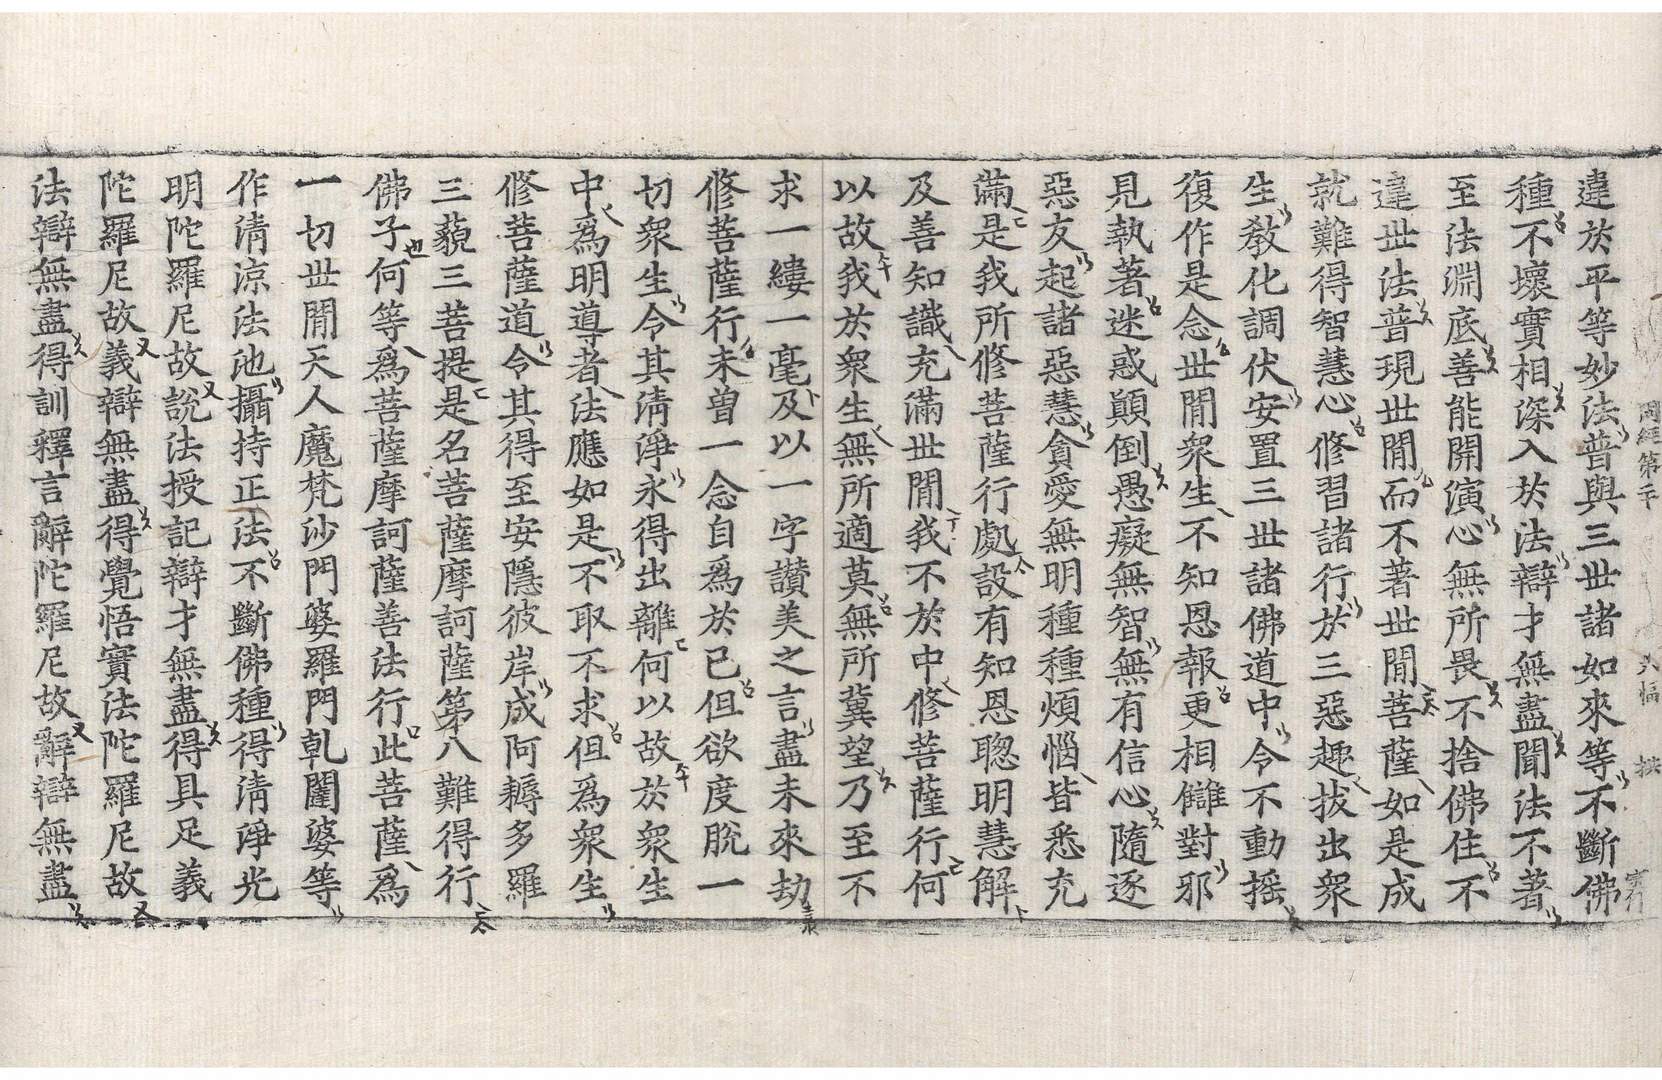 違於平等妙法普與三世諸如來等不斷佛
種不壞實相深入於法辯才無盡聞法不著
至法淵底善能開演心無所畏不捨佛住不
違世法普現世間而不著世間菩薩如是成
就難得智慧心修習諸行於三惡趣拔出衆
生教化調伏安置三世諸佛道中令不動搖
復作是念世間衆生不知恩報更相讎對邪
見執著迷惑顚倒愚癡無智無有信心隨逐
惡友起諸惡慧貪愛無明種種煩惱皆悉充
滿是我所修菩薩行處設有知恩聰明慧解
及善知識充滿世間我不於中修菩薩行何
以故我於衆生無所適莫無所冀望乃至不
求一縷一毫及以一字讚美之言盡未來劫
修菩薩行未曾一念自爲於己但欲度脫一
切衆生令其淸淨永得出離何以故於衆生
中爲明導者法應如是不取不求但爲衆生
修菩薩道令其得至安隱彼岸成阿耨多羅
三藐三菩提是名菩薩摩訶薩第八難得行
佛子何等爲菩薩摩訶薩善法行此菩薩爲
一切世間天人魔梵沙門婆羅門乹闥婆等
作淸涼法池攝持正法不斷佛種得淸淨光
明陀羅尼故說法授記辯才無盡得具足義
陀羅尼故義辯無盡得覺悟實法陀羅尼故
法辯無盡得訓釋言辭陀羅尼故辭辯無盡